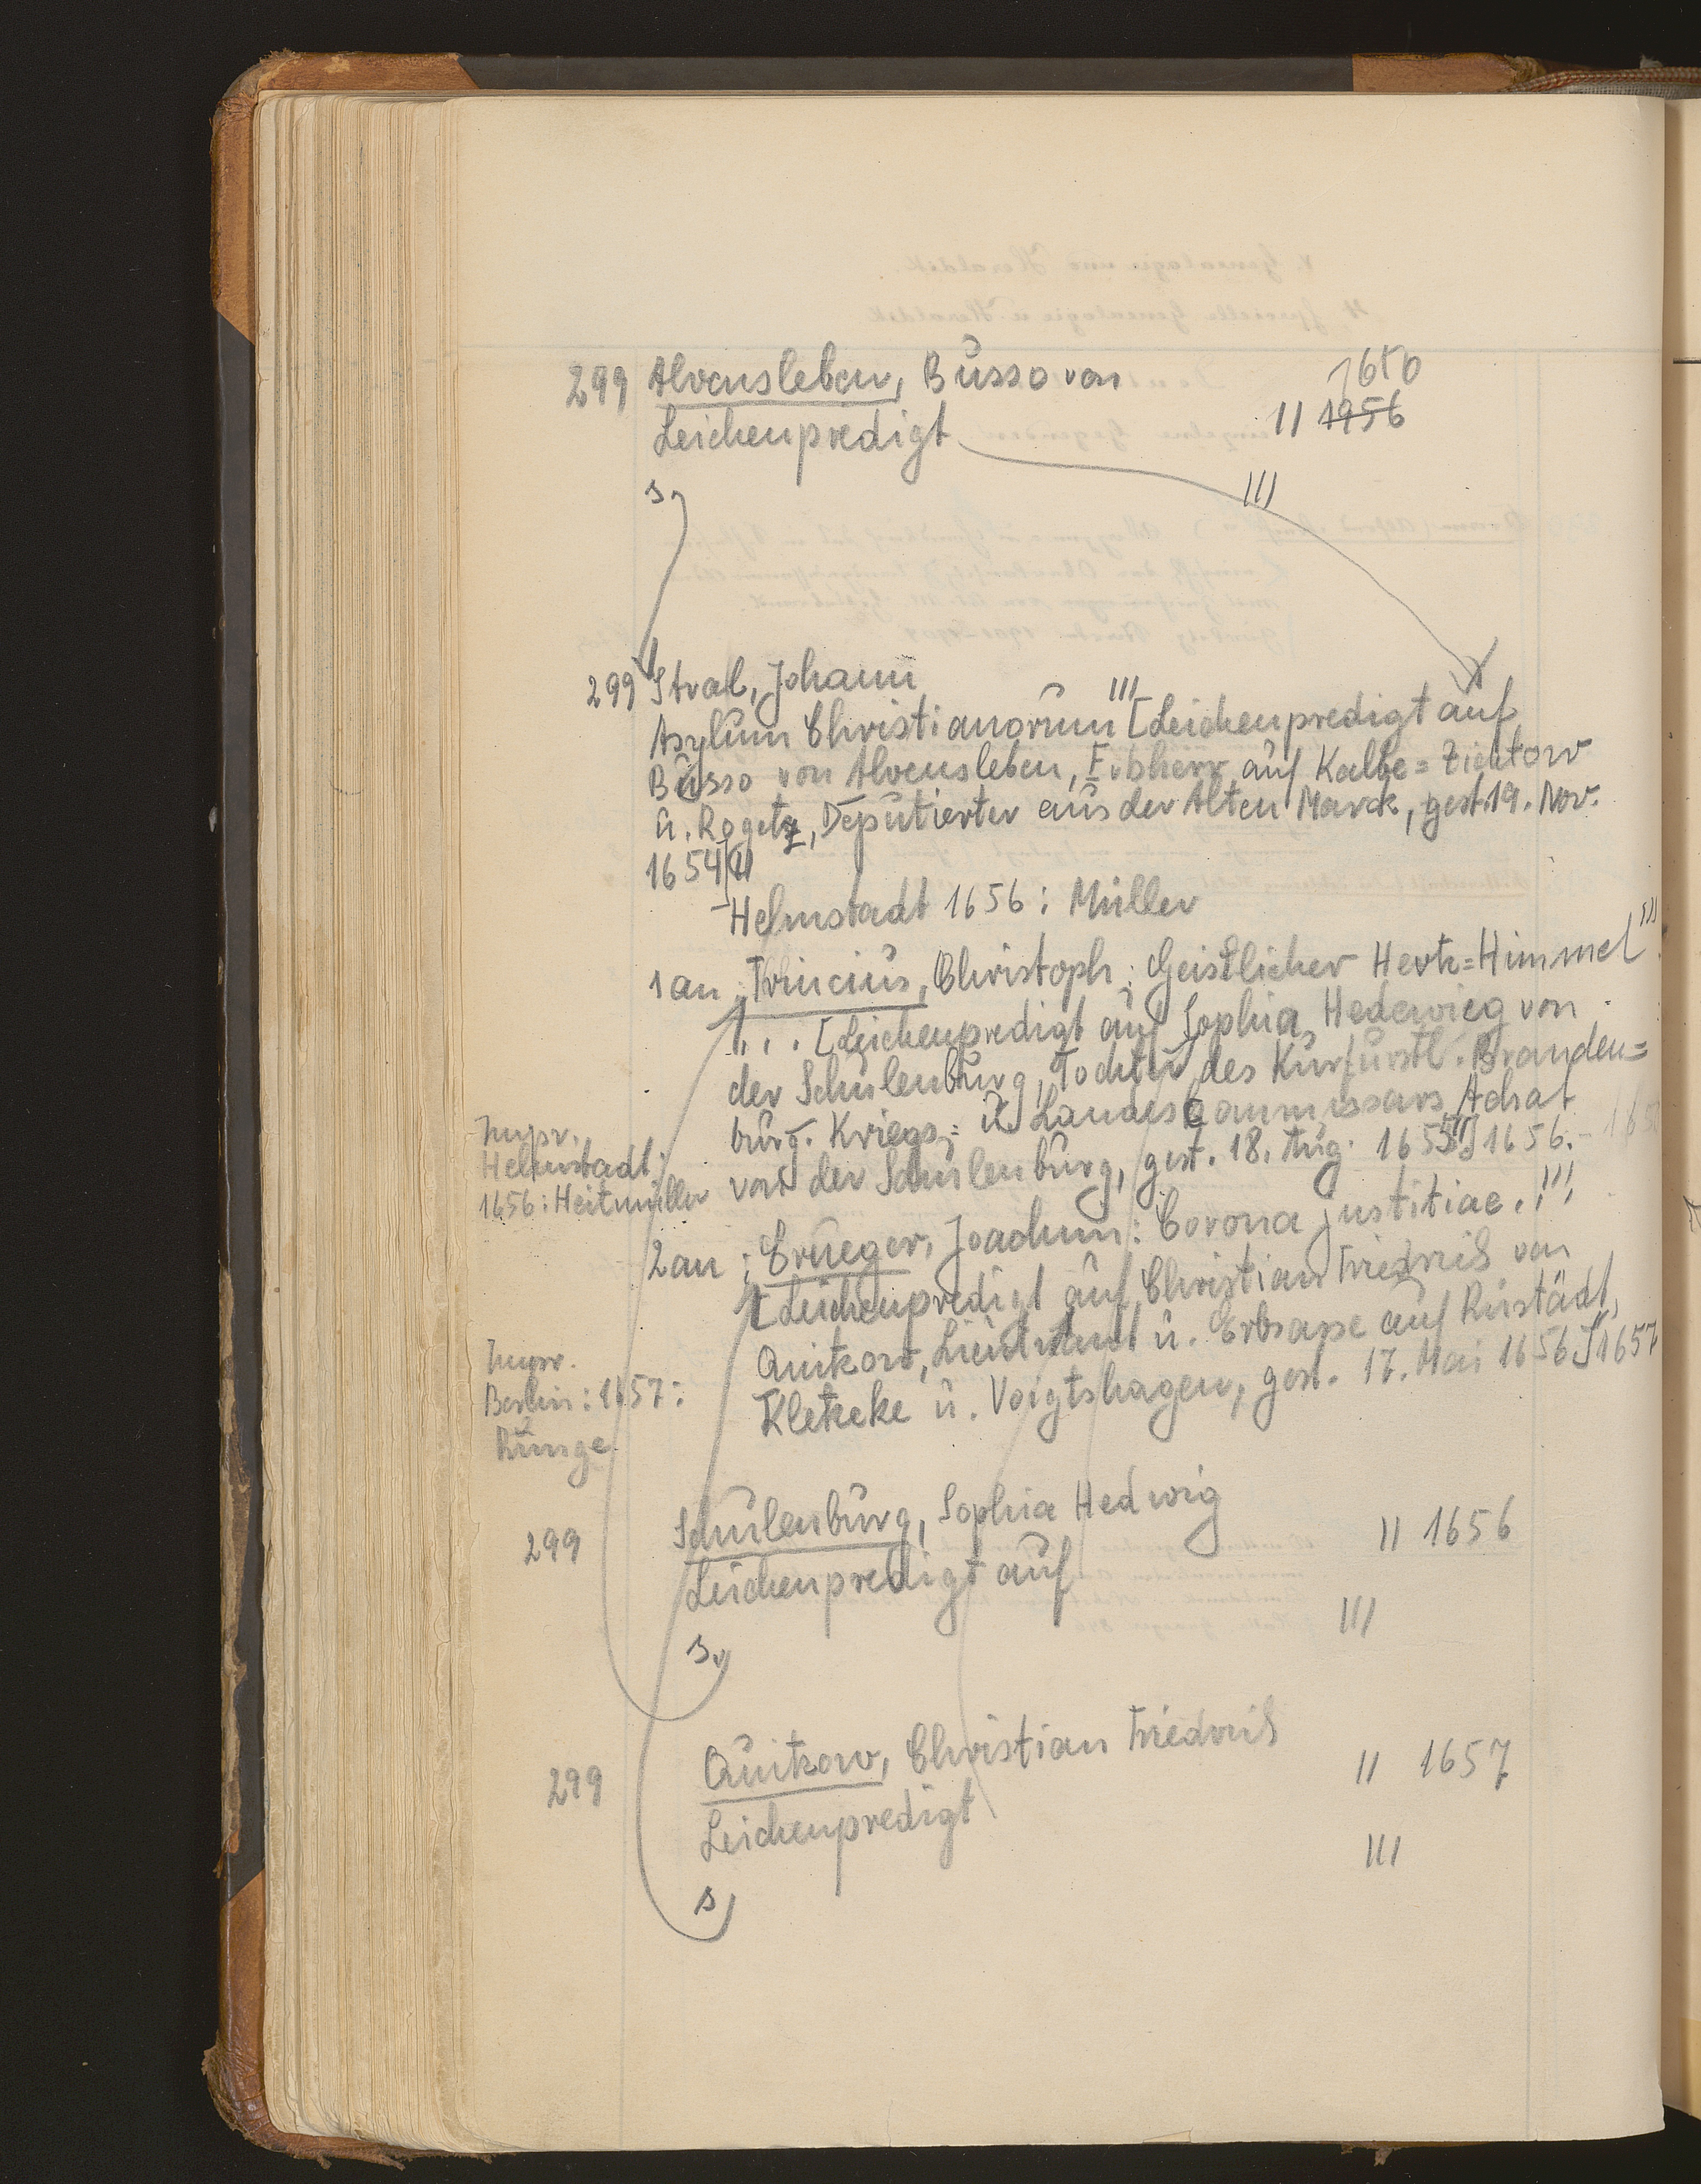 299 Alvensleben, Busso von
1650
Leichenpredigt II 1956
s. III
299 Stral, Johann
Asylum Christianorum III [Leichenpredigt auf
Busso von Alvensleben, Erbherr auf Kalbe=Zichtow
u. Rogetz, Deputierter aus der Alten Marck, gest. 19. Nov.
1654]
Helmstadt 1656: Müller
1 an: Christoph; Geistlicher Hertz=Himmel III
... [Leichenpredigt auf Sophia Hedewieg von
der Schulenburg, Tochter des Kurfürstl. Branden=
burg. Kriegs= u. Landescommissars Achat
von der Schulenburg, gest. 18. Aug. 1655] 1656.
Impr.
Helmstadt
1656: Heitmüller
2 an: Crüeger, Joachim: Corona justitiae. III
[Leichenpredigt auf Christian Friedrich von
Quitzow, Lieutnant u. Erbsasse auf Rüstädt,
Kletzke u. Voigtshagen, gest. 17. Mai 1656] 1657
Impr.
Berlin: 1657:
Runge
299 Schulenburg, Sophia Hedwig II 1656
Leichenpredigt auf
III
s.
299 Quitzow, Christian Friedrich II 1657
Leichenpredigt
III
s